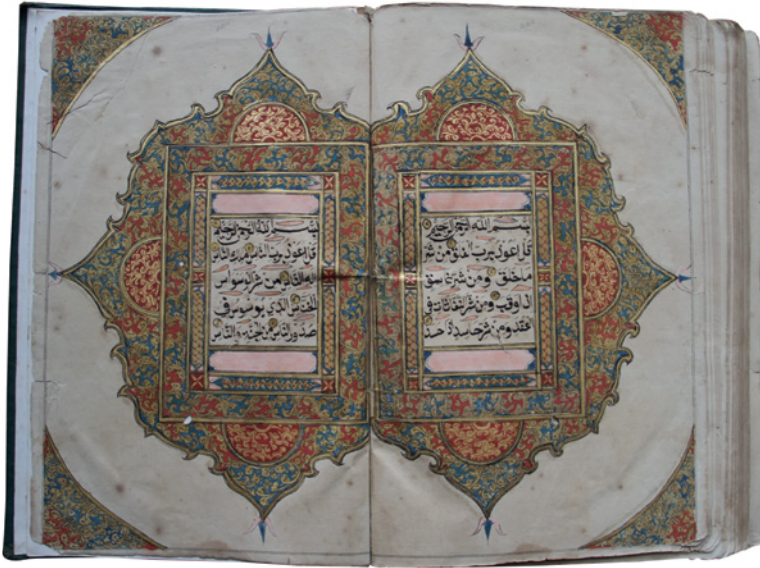 بسم الله الرحمن الرحيم
قل اعوذ برب الفلق من شر
ما خلق ومن شر غاسق
اذا وقب ومن شر النفاثات في
العقد ومن شر حاسد اذا حسد
بسم الله الرحمن الرحيم
قل اعوذ برب الناس ملك الناس
اله الناس من شر الوسواس
الخناس الذي يوسوس في
صدور الناس من الجنة والناس